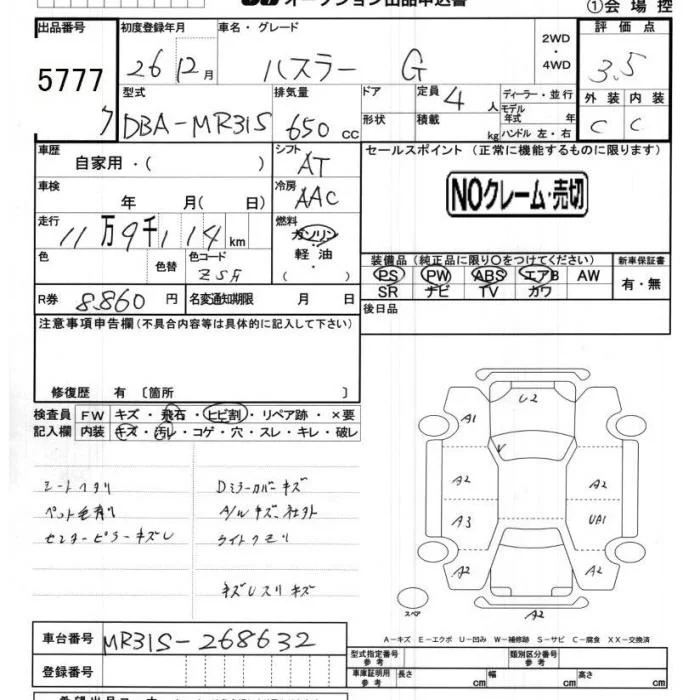 オークション出品申込書
①会場控
出品番号 初度登録年月 車名・グレード 2WD・4WD 評価点
5777 26 12月 ハスラー G 3.5
型式 排気量 ドア 定員 4人 ディーラー・並行 外装 内装
モデル年式 年
ク DBA-MR31S 650cc 形状 積載 kg ハンドル 左・右 C C
車歴 シフト セールスポイント (正常に機能するものに限ります)
自家用・( ) AT
車検 冷房 NOクレーム・売切
年 月( 日) AAC
走行 燃料
11万9千114km ガソリン
軽油
( )
色 色替 色コード ZSA
装備品 (純正品に限り○をつけてください) 新車保証書
PS PW ABS エアB AW 有・無
SR ナビ TV カワ
R券 8860円 名変通知期限 月 日 後日品
注意事項申告欄 (不具合内容等は具体的に記入して下さい)
修復歴 有 〔箇所 〕
検査員 FW キズ・飛石・ヒビ割・リペア跡・×要
記入欄 内装 キズ・汚レ・コゲ・穴・スレ・キレ・破レ
シートヘタリ Dミラーカバーキズ
ペット毛有リ A/Wキズ、社外
センターピラーキズレ ライトクモリ
キズUスリキズ
U2
A1
V
A2 A2
A3 UA1
A2 A2
スペア
A2
A-キズ E-エクボ U-凹み W-補修跡 S-サビ C-腐食 XX-交換済
車台番号 MR31S-268632
型式指定番号 参考 類別区分番号 参考
登録番号 車庫証明用 参考 長さ cm 幅 cm 高さ cm